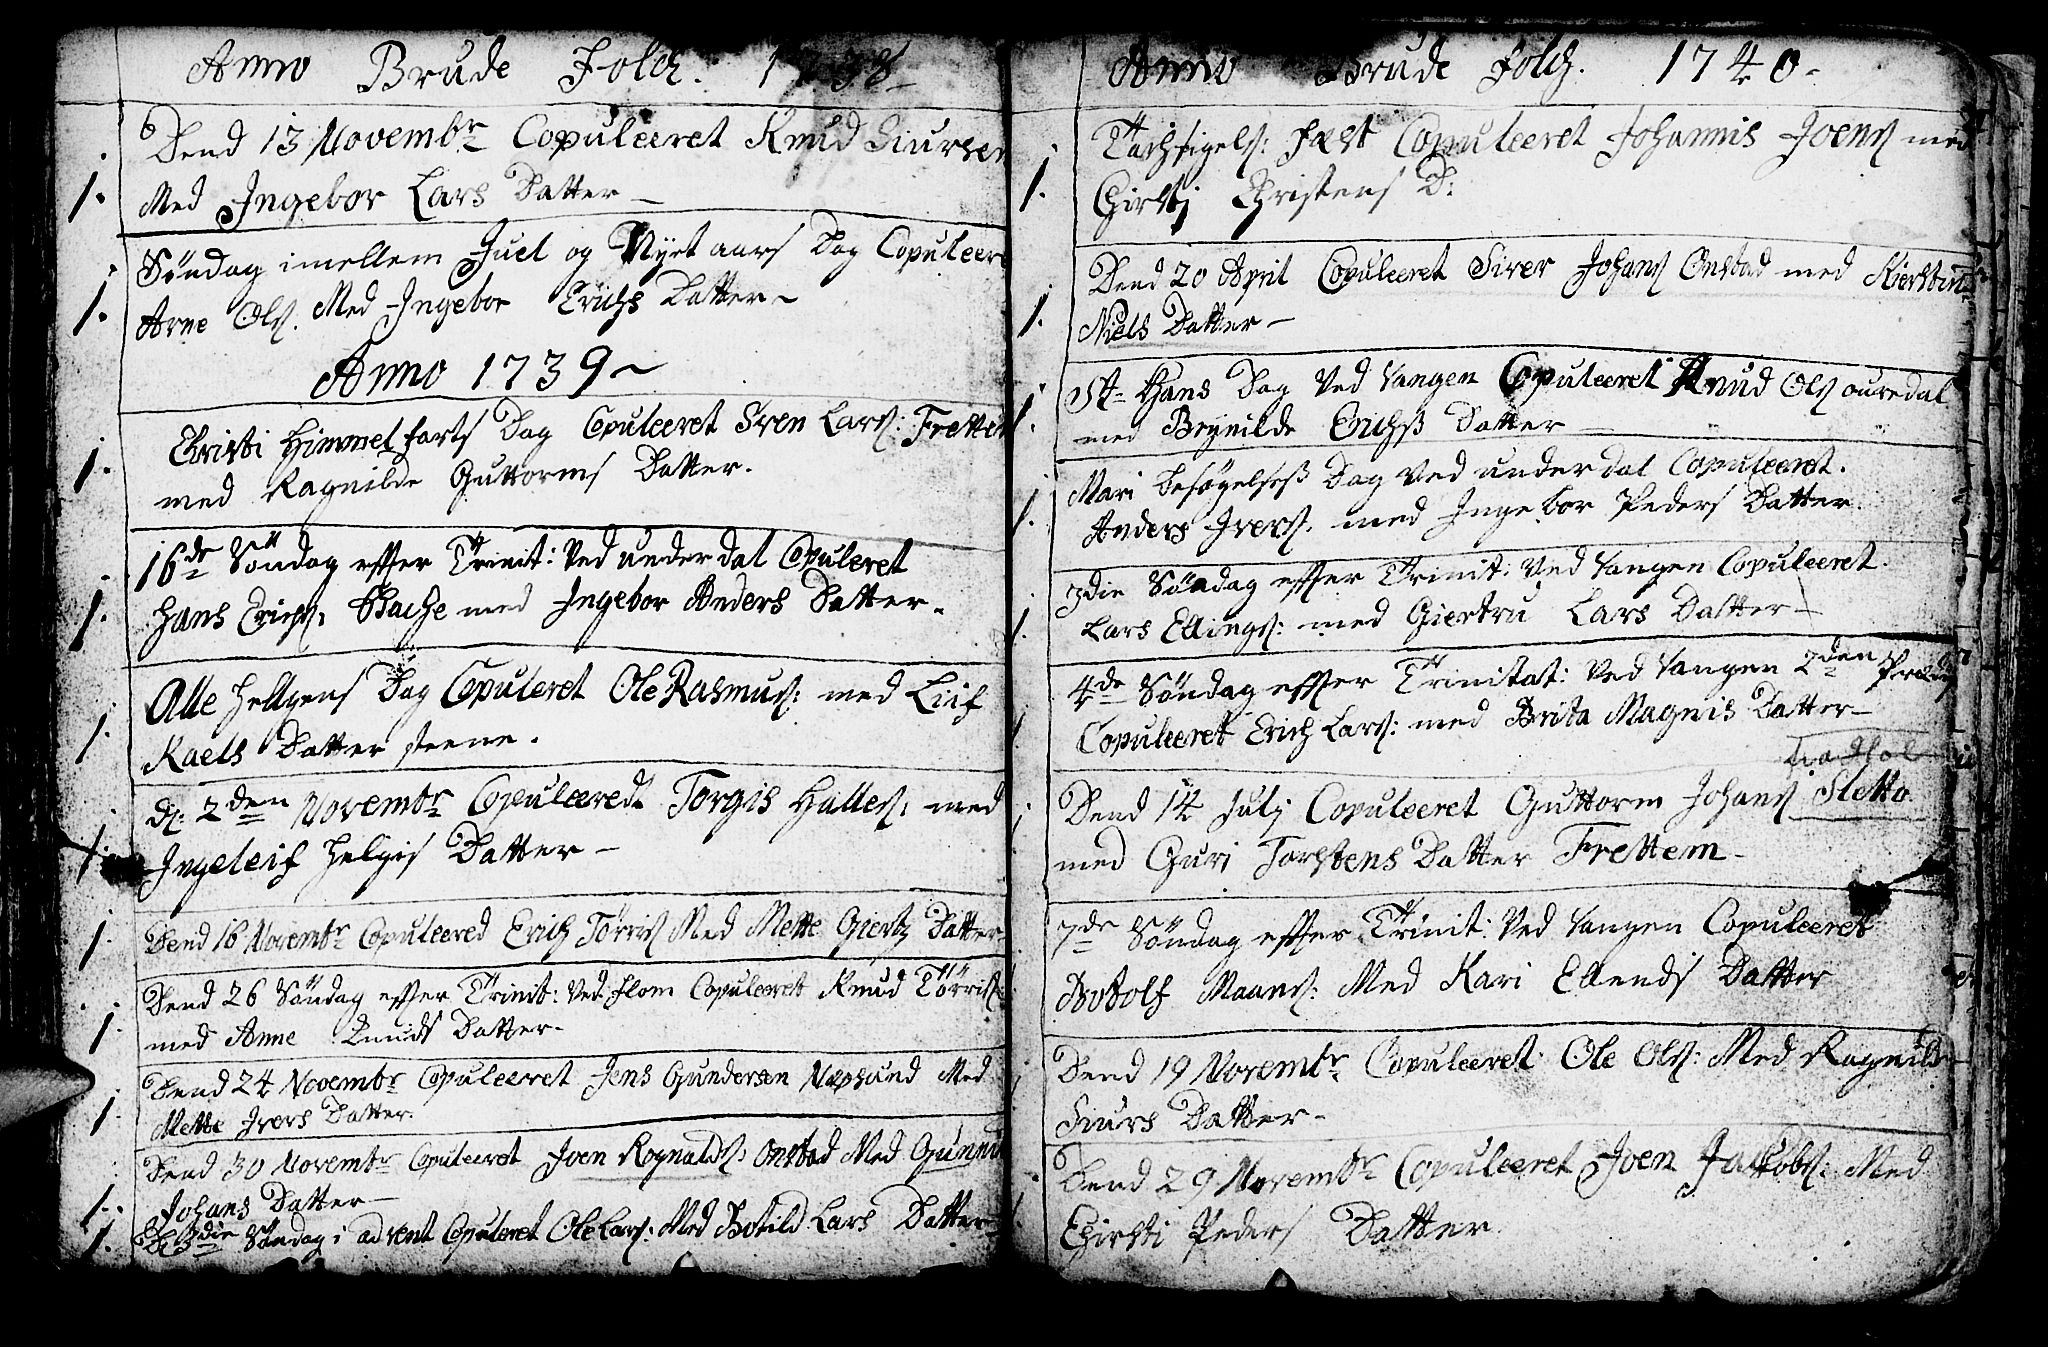 Anno Brude Folch: 1738
Dend 13 Novembr Copuleeret Knud Siursen
1. Med Ingebor Lars Datter
Söndag imellem Juel og Nyet aars Dag Copuleer
1. Arne Ols. Med Ingebor Erichs Datter
Anno 1739
Christi Himmelfarts Dag Copuleeret Iren Lars: Frettem
1. med Ragnilde Guttorms Datter.
16de Söndag effter Trinit: Ved underdal Copuleret
1. Hans Erichs: Bache med Ingebor Anders Datter.
Alle Helgens Dag Copuleret Ole Rasmus: med Liif
1. Kaels Datter steene.
D: 2den Novembr Copuleered Torgis Halles: med
1. Ingeleif Helgis Datter
1. Dend 16 Novembr Copuleered Erich Törris Med Mette Giertz Datter
Dend 26 Söndag effter Trinit: Ved flom Copuleeret Knud Törris:
1. med Anne Knuds Datter
Dend 24 Novembr Copuleeret Jens Gundersen Næssund Med
1. Mette Ivers Datter.
Dend 30 Novembr Copuleeret Joen Rognalds: Onstad Med Gunnil
1. Johans Datter
1. D: 3die Söndag i advent Copuleret Ole Lars: Med Botild Lars Datter
Anno Brude Folch. 1740
Tachsigels: Fæst Copuleeret Johannis Joens med
1. Chirsti Christens D:
Dend 20 April Copuleeret Siver Johans Onstad med Kierstin
1. Niels Datter
St: Hans Dag Ved Vangen Copuleeret Knud Ols ouredal
1. med Brynilde Erichs Datter
Mari besögelses Dag Ved underdal Copuleeret.
1. Anders Ivers: med Ingebor Peders Datter.
3die Söndag effter Trinit: Ved Vangen Copuleeret.
1. Lars Ellings: med Giertru Lars Datter
4de Söndag effter Trinitat: Ved Vangen 2den Prædig
1. Copuleeret Erich Lars: med Brita Magnis Datter
fra Hol
Dend 14 July Copuleeret Guttorm Johans Sletto
med Guri Torstens Datter Frettem
7de Söndag effter Trinit: Ved Vangen Copuleeret
Botolf Maans: Med Kari Ellends Datter
Dend 19 Novembr Copuleeret Ole Ols: Med Ragnilde
Siurs Datter
Dend 29 Novembr Copuleeret Joen Jakobs: Med
1. Chirsti Peders Datter.